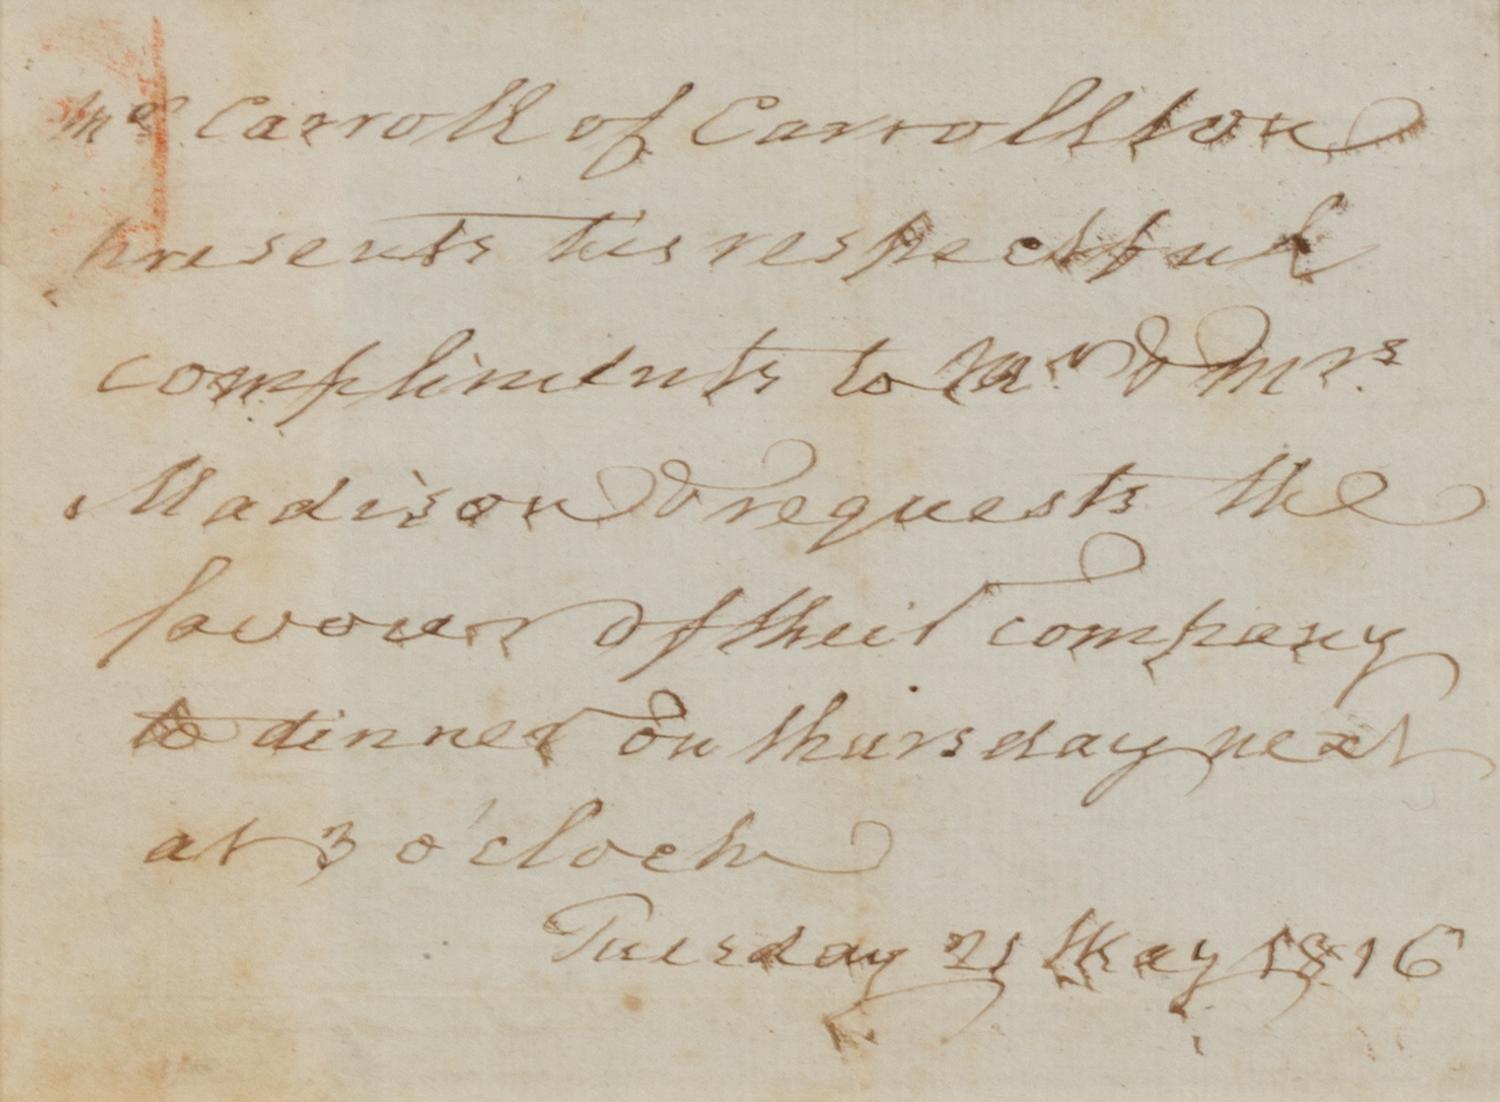 Mr. Carroll of Carrollton
presents his respectful
compliments to Mr. & Mrs.
Madison & requests the
favour of their company
to dinner on thursday next
at 3 o'clock
Tuesday 21 May 1816